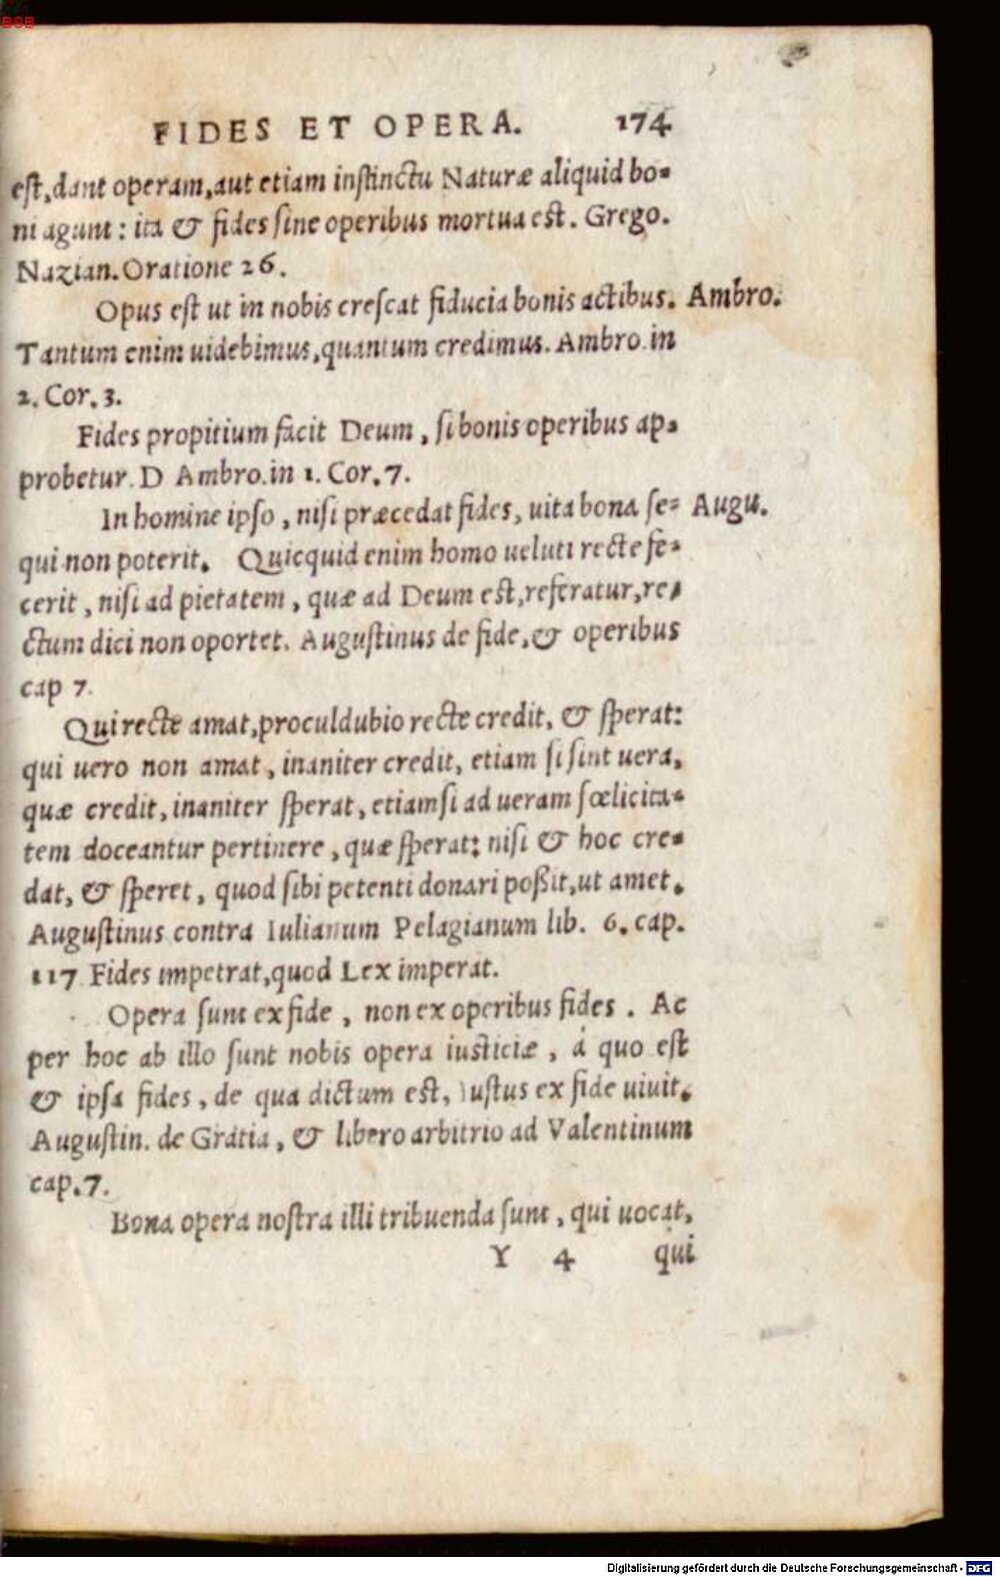 BSB
FIDES ET OPERA. 174
est, dant operam, aut etiam instinctu Naturæ aliquid bo-
ni agunt: ita & fides sine operibus mortua est. Grego.
Nazian. Oratione 26.
Opus est ut in nobis crescat fiducia bonis actibus. Ambro.
Tantum enim uidebimus, quantum credimus. Ambro. in
2. Cor. 3.
Fides propitium facit Deum, si bonis operibus ap-
probetur. D Ambro. in 1. Cor. 7.
In homine ipso, nisi præcedat fides, uita bona se- Augu.
qui non poterit. Quicquid enim homo ueluti recte fe-
cerit, nisi ad pietatem, quæ ad Deum est, referatur, re-
ctum dici non oportet. Augustinus de fide, & operibus
cap 7.
Qui recte amat, proculdubio recte credit, & sperat:
qui uero non amat, inaniter credit, etiam si sint uera,
quæ credit, inaniter sperat, etiamsi ad ueram fœlicita-
tem doceantur pertinere, quæ sperat: nisi & hoc cre-
dat, & speret, quod sibi petenti donari poßit, ut amet.
Augustinus contra Iulianum Pelagianum lib. 6. cap.
117 Fides impetrat, quod Lex imperat.
Opera sunt ex fide, non ex operibus fides. Ac
per hoc ab illo sunt nobis opera iusticiæ, á quo est
& ipsa fides, de qua dictum est, Iustus ex fide uiuit.
Augustin. de Gratia, & libero arbitrio ad Valentinum
cap. 7.
Bona opera nostra illi tribuenda sunt, qui uocat,
Y 4 qui
Digitalisierung gefördert durch die Deutsche Forschungsgemeinschaft - DFG